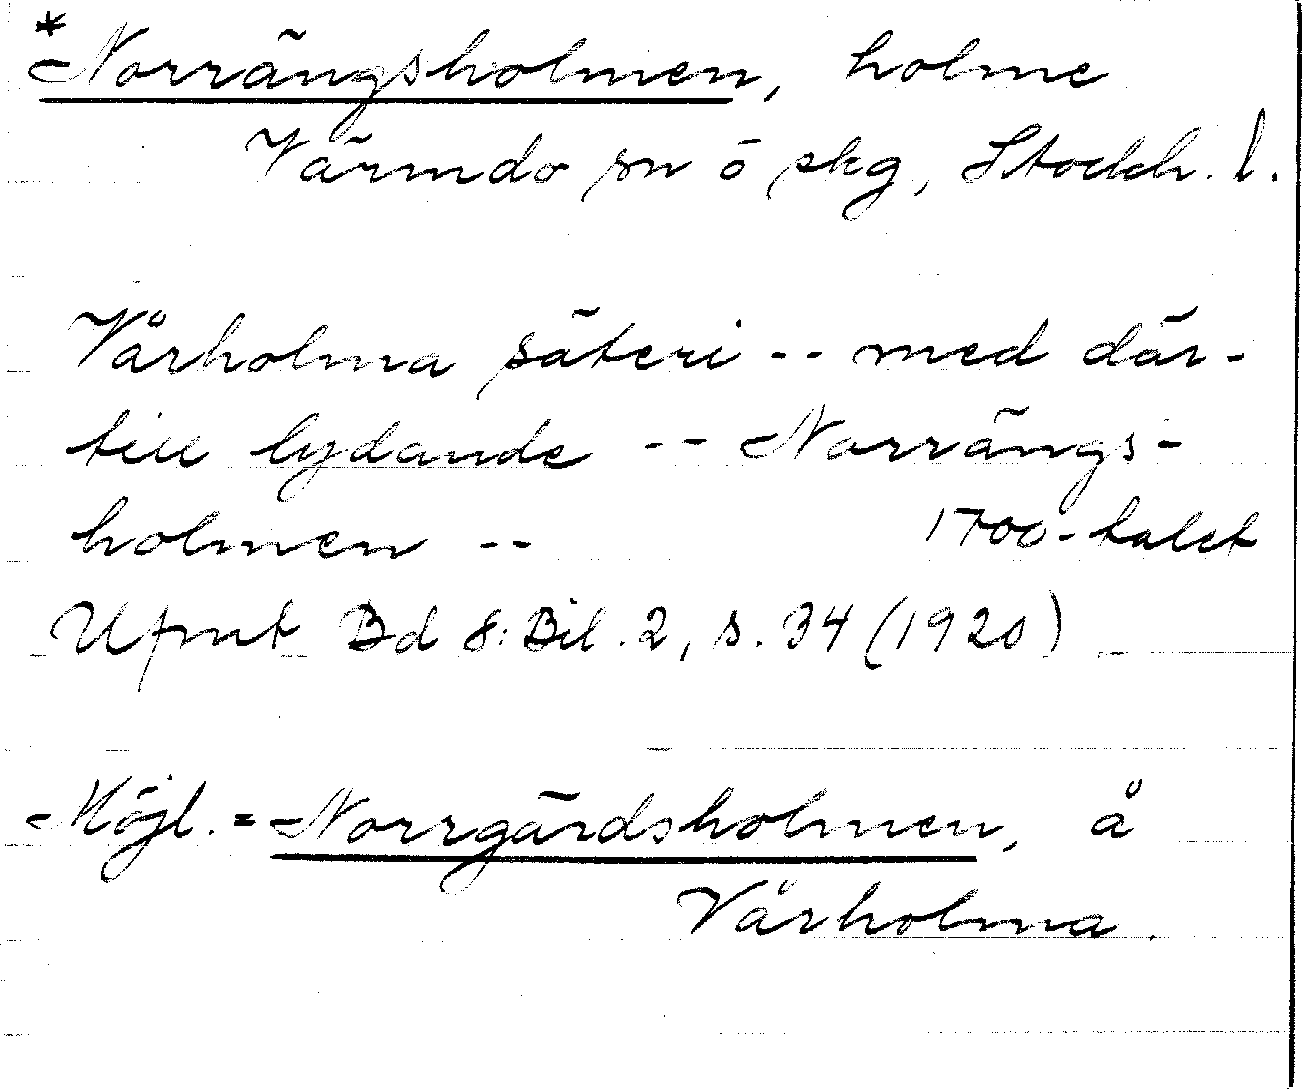 *Norrängsholmen, holme
Värmdö sn ö skg, Stockh. l.
Vårholma säteri -- med där-
till lydande -- Norrängs-
holmen -- 1700-talet
Ufmt Bd 8: Bil. 2, s. 34 (1920)
Möjl. = Norrgårdsholmen, å
Vårholma.